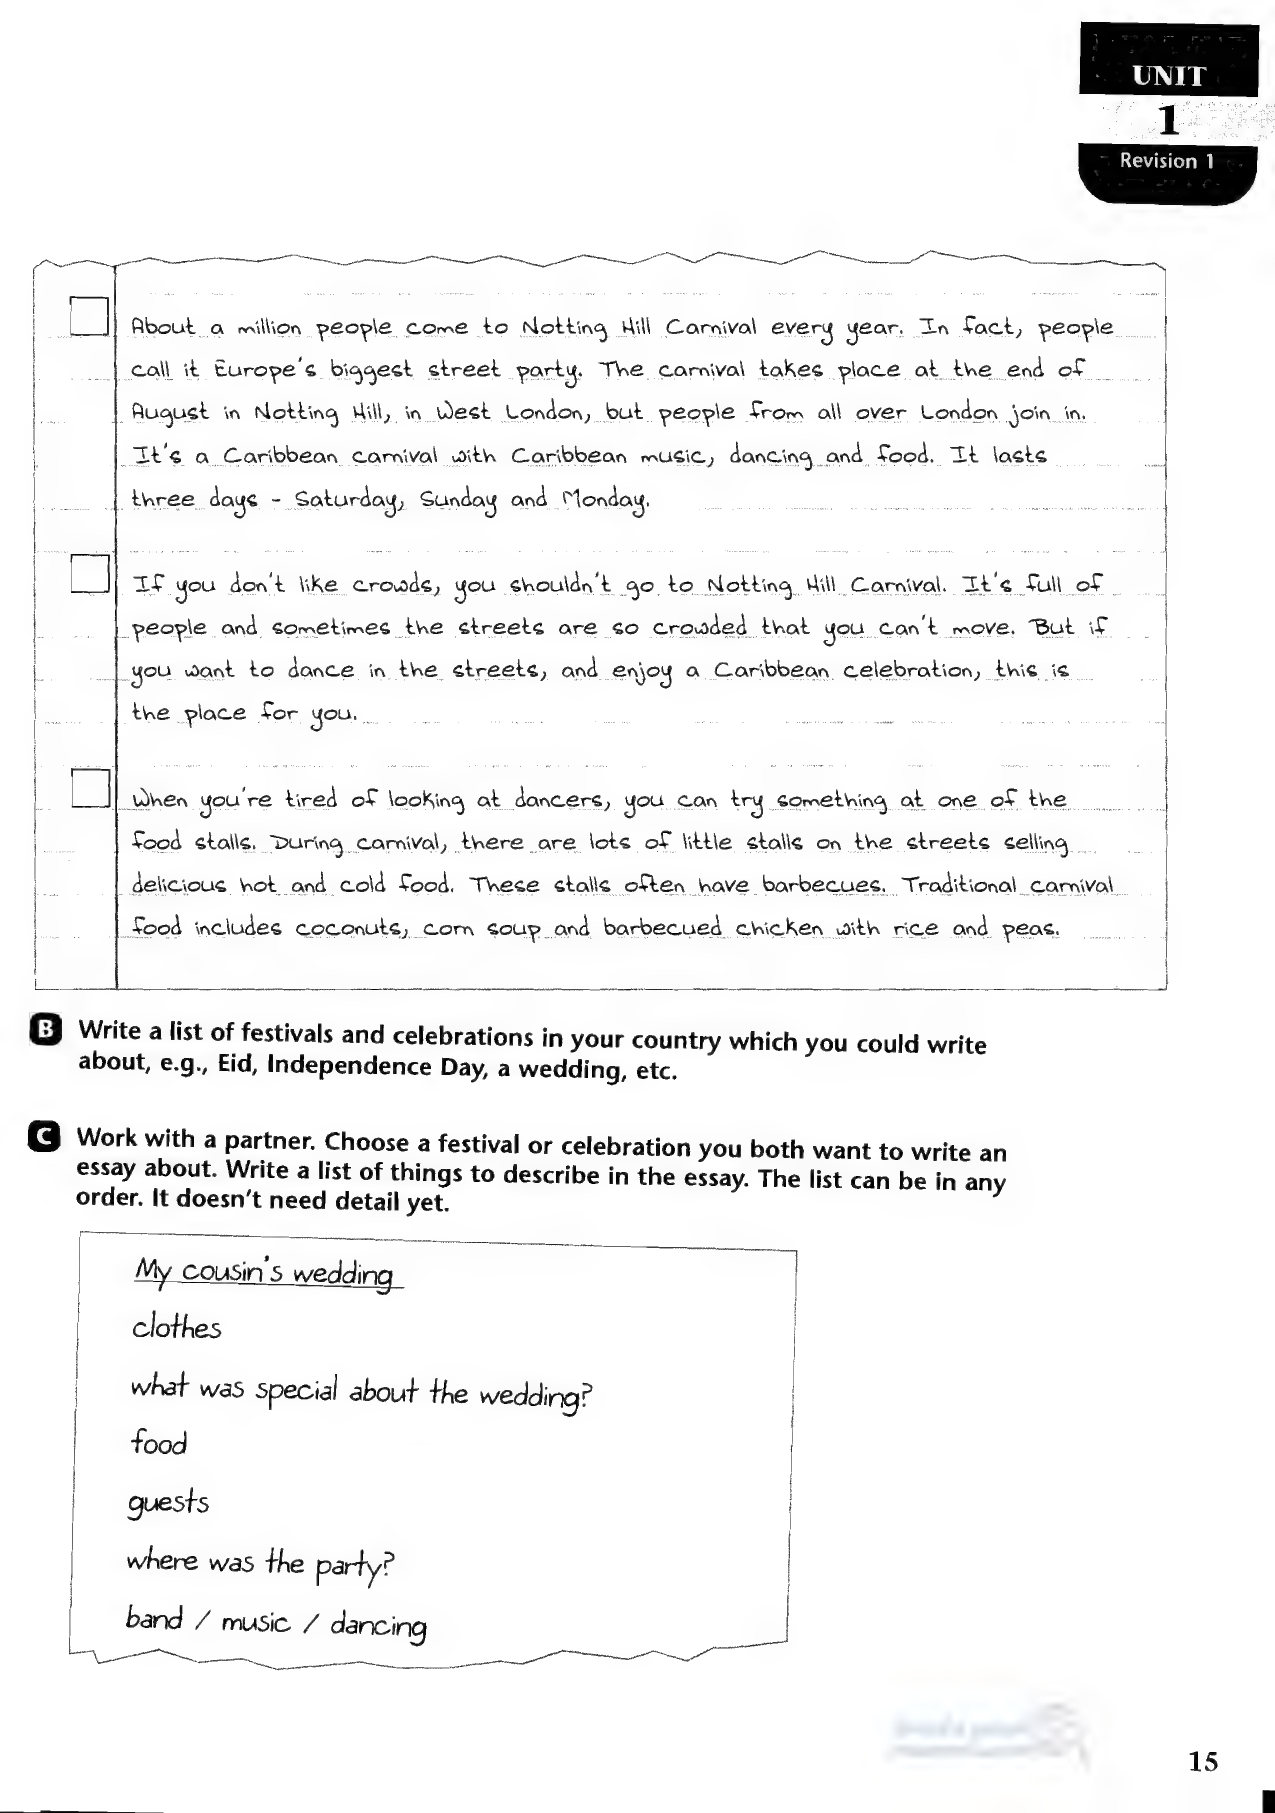 UNIT
1
Revision 1
About a million people come to Notting Hill Carnival every year. In fact, people
call it Europe's biggest street party. The carnival takes place at the end of
August in Notting Hill, in West London, but people from all over London join in.
It's a Caribbean carnival with Caribbean music, dancing and food. It lasts
three days - Saturday, Sunday and Monday.
If you don't like crowds, you shouldn't go to Notting Hill Carnival. It's full of
people and sometimes the streets are so crowded that you can't move. But if
you want to dance in the streets, and enjoy a Caribbean celebration, this is
the place for you.
When you're tired of looking at dancers, you can try something at one of the
food stalls. During carnival, there are lots of little stalls on the streets selling
delicious hot and cold food. These stalls often have barbecues. Traditional carnival
food includes coconuts, corn soup and barbecued chicken with rice and peas.
B Write a list of festivals and celebrations in your country which you could write
about, e.g., Eid, Independence Day, a wedding, etc.
C Work with a partner. Choose a festival or celebration you both want to write an
essay about. Write a list of things to describe in the essay. The list can be in any
order. It doesn't need detail yet.
My cousin's wedding
clothes
what was special about the wedding?
food
guests
where was the party?
band / music / dancing
15